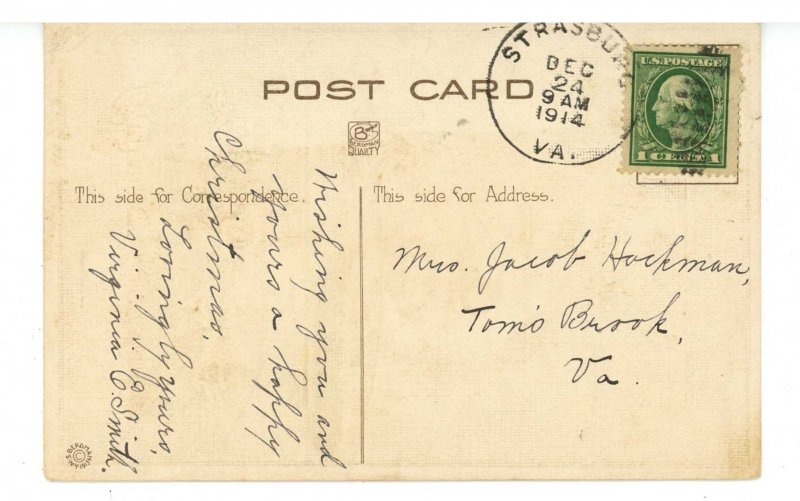 POST CARD
STRASBURG
DEC
24
9 AM
1914
VA.
U.S. POSTAGE
1 CENT 1
B
BERGMAN
QUALITY
This side for Correspondence.
This side for Address.
Wishing you and
yours a happy
Christmas,
Lovingly yours,
Virginia C. Smith.
Mrs. Jacob Hockman,
Tom's Brook,
Va.